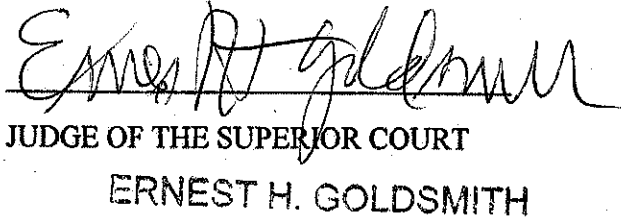 Ernest H Goldsmith
JUDGE OF THE SUPERIOR COURT
ERNEST H. GOLDSMITH